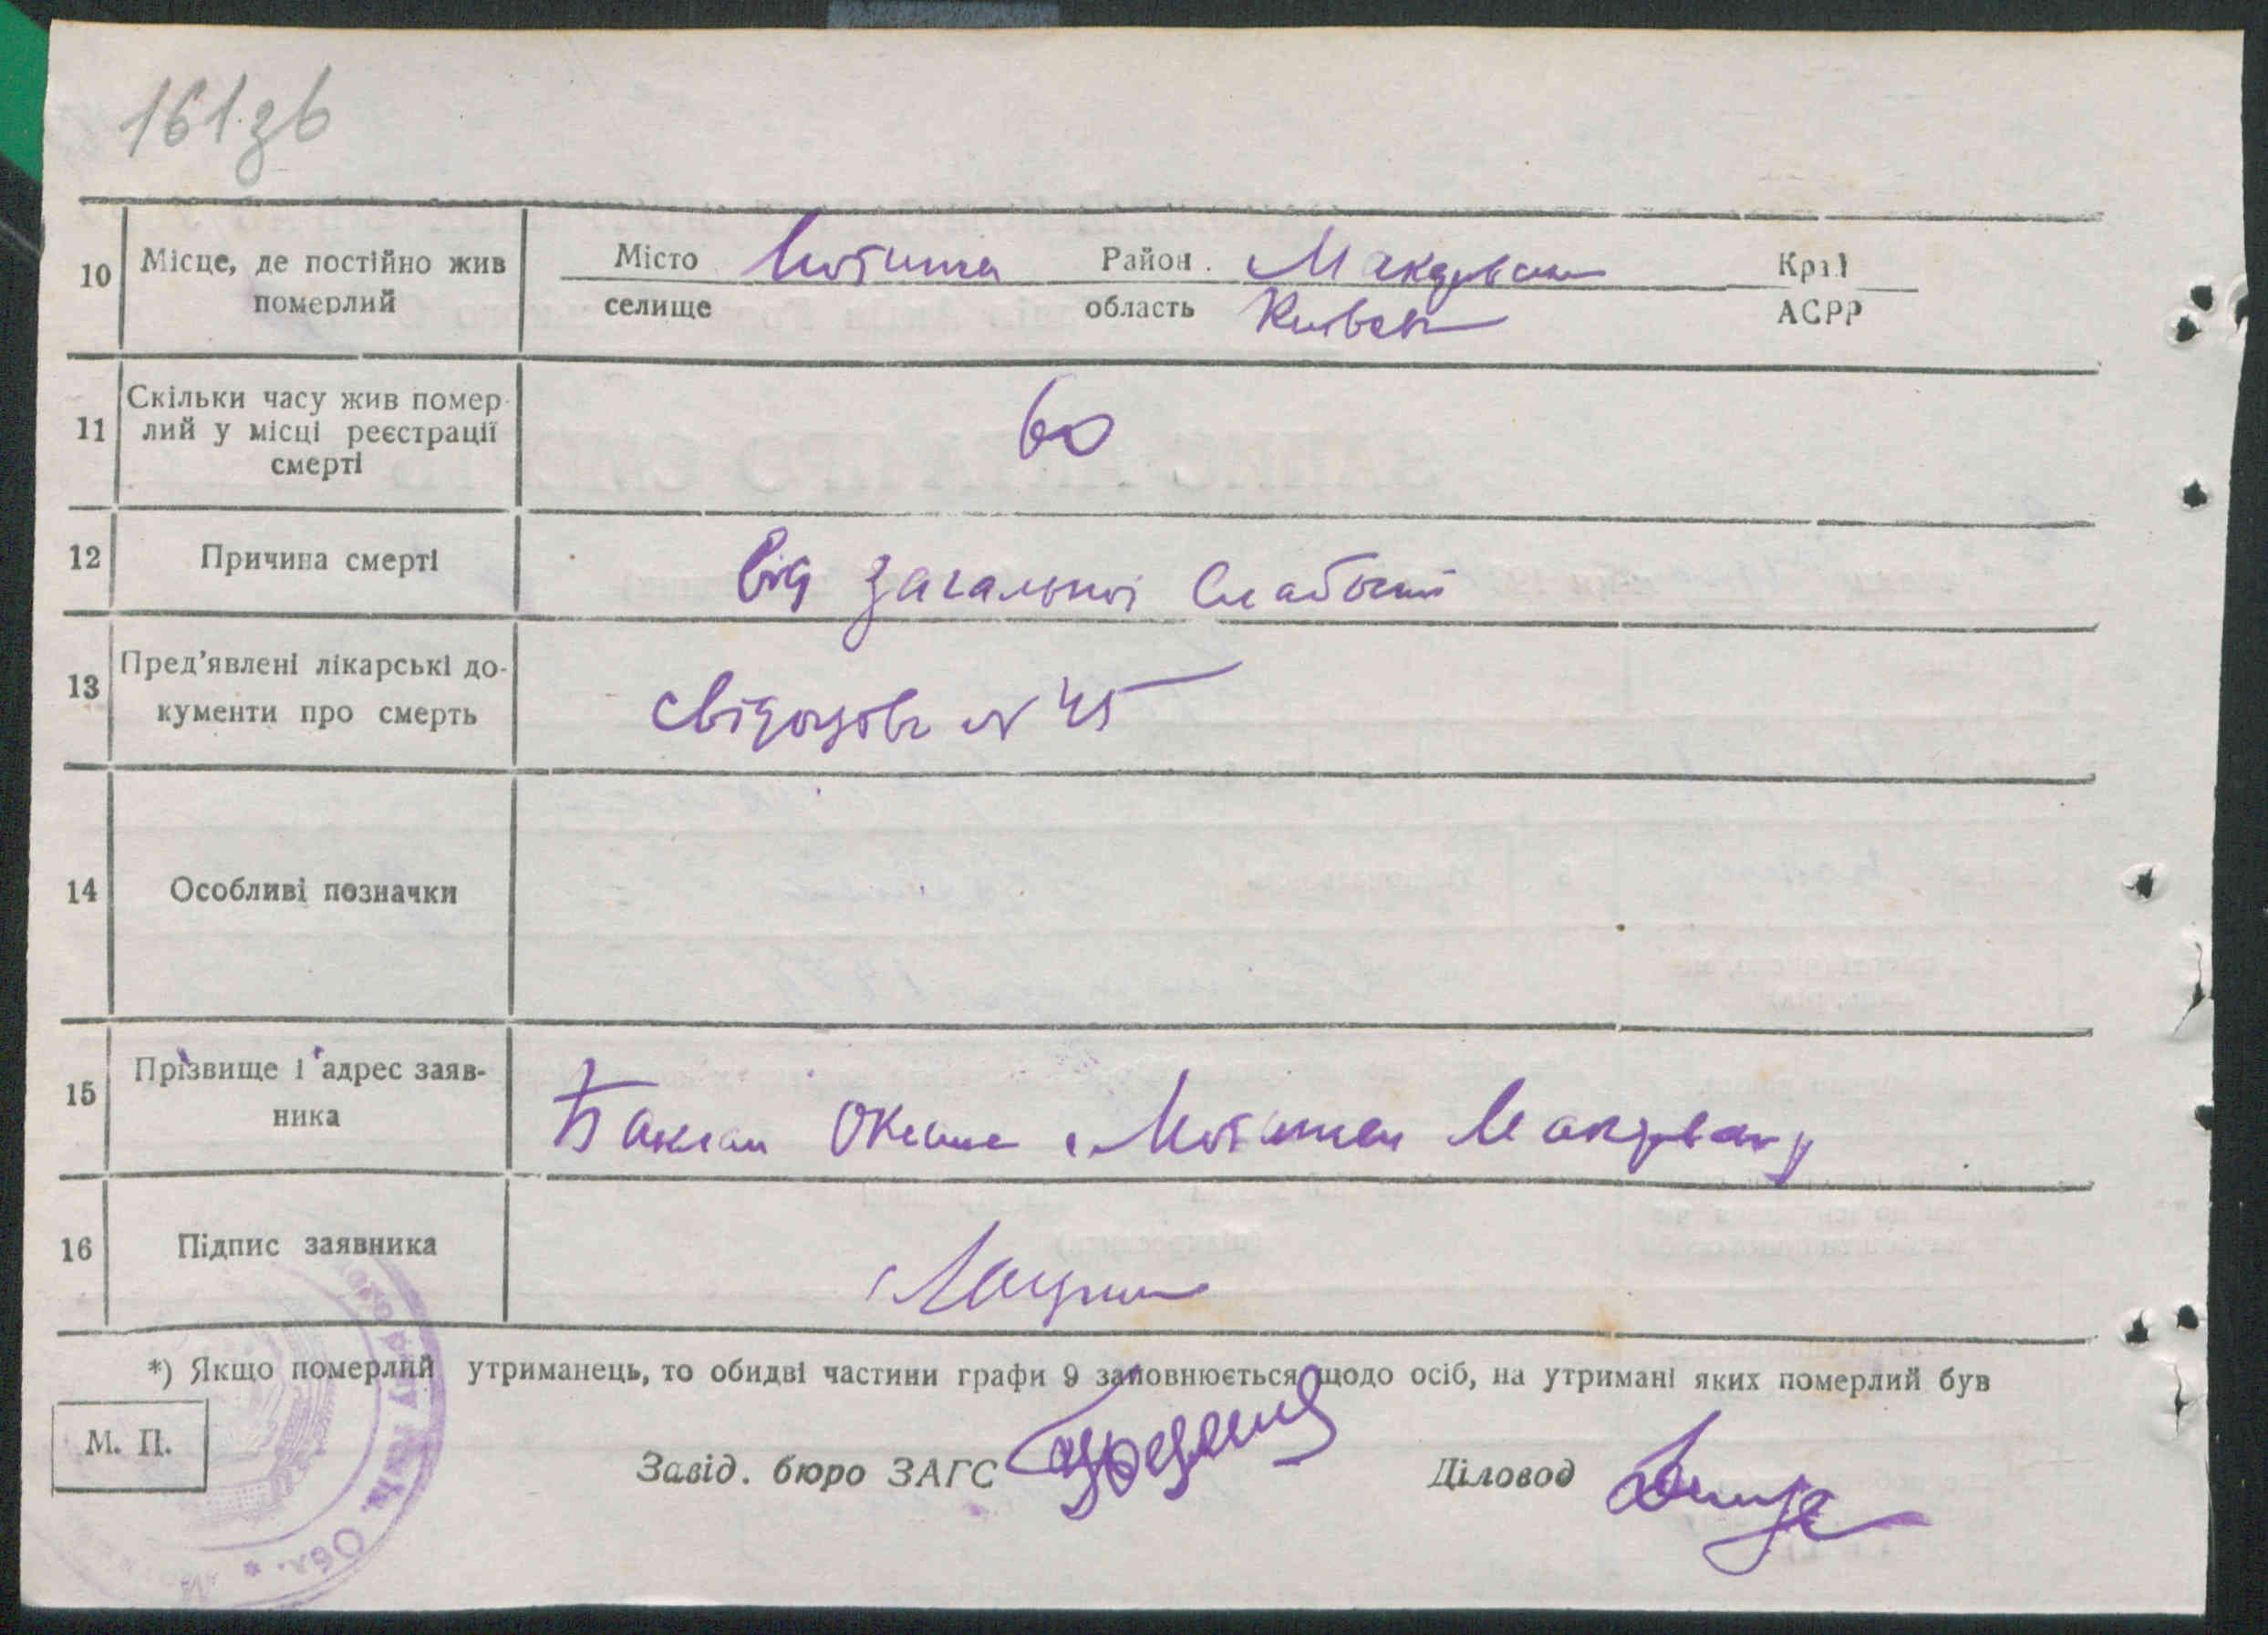 161зв
10 Місце, де постійно жив Місто Мотижа Район Макарівськ Край
померлий селище область Київськ АСРР
Скільки часу жив помер-
11 лий у місці реєстрації 60
смерті
12 Причина смерті Від загальної слабости
13 Пред’явлені лікарські до-
кументи про смерть свідоцтво № 45
14 Особливі позначки
15 Прізвище і адрес заяв-
ника Баклан
16 Підпис заявника
*) Якщо померлий утриманець, то обидві частини графи 9 заповнюється щодо осіб, на утримані яких померлий був
М. П.
Завід. бюро ЗАГС Діловод
Обл. *